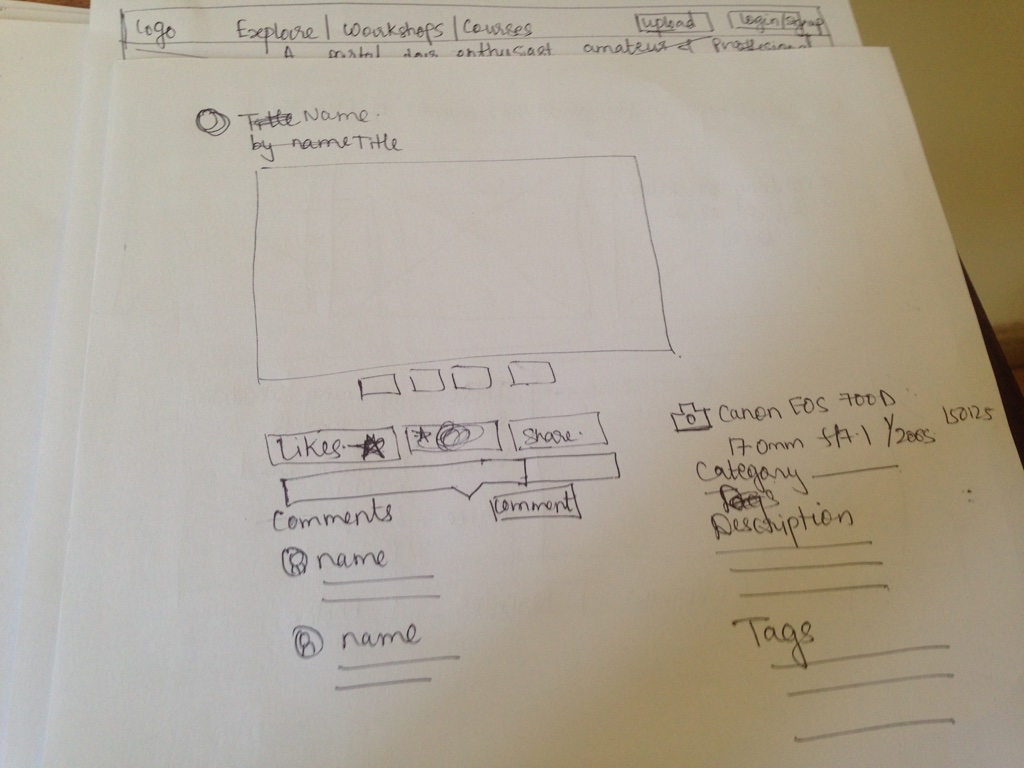 Logo Explore | Workshops | Courses upload login/signup
A portal for enthusiast amateur & Professional
Title Name.
by name Title
Likes
Share.
Comments
Comment
name
name
Canon EOS 700D
170mm f/7.1 1/200s ISO125
Category
Tags
Description
Tags